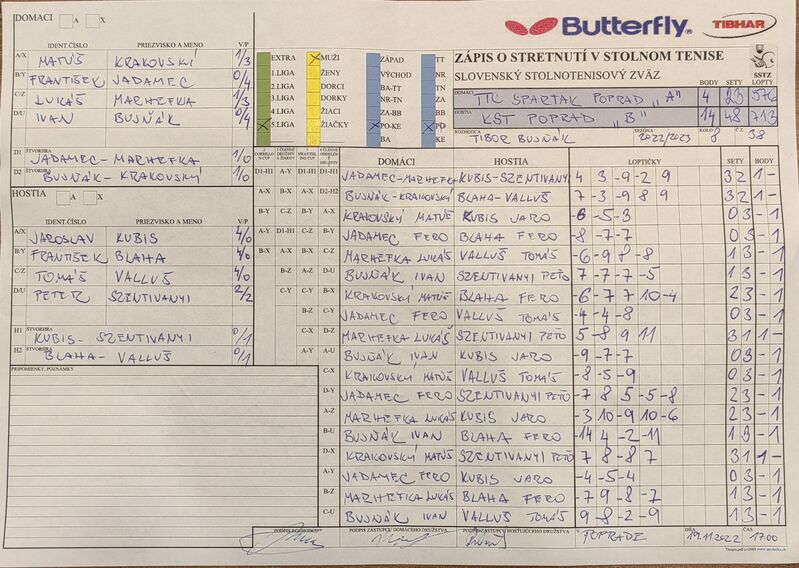 DOMACI A X
Butterfly TIBHAR
IDENT.ČÍSLO PRIEZVISKO A MENO V/P
A/X MATÚŠ KRAKOVSKÍ 1/3
B/Y FRANTIŠEK JADAMEC 0/4
C/Z LUKÁŠ MARHEFKA 1/3
D/U IVAN BUJŇÁK 0/4
D1 ŠTVORHRA JADAMEC-MARHEFKA 1/0
D2 ŠTVORHRA BUJŇÁK-KRAKOVSKÝ 1/0
EXTRA MUŽI ZÁPAD TT
1.LIGA ŽENY VÝCHOD NR
2.LIGA DORCI BA-TT ZA
3.LIGA DORKY NR-TN
4.LIGA ŽIACI ZA-BB BB
X 5.LIGA ŽIAČKY X PO-KE X PO
BA KE
ZÁPIS O STRETNUTÍ V STOLNOM TENISE
SLOVENSKÝ STOLNOTENISOVÝ ZVÄZ SSTZ
BODY SETY LOPTY
DOMÁCI TTC SPARTAK POPRAD „A" 4 23 576
HOSTIA KST POPRAD „B" 14 48 713
ROZHODCA TIBOR BUJŇÁK SEZÓNA 2022/2023 KOLO 8 Č.Z. 38
HOSTIA A X
IDENT.ČÍSLO PRIEZVISKO A MENO V/P
A/X JAROSLAV KUBIS 4/0
B/Y FRANTIŠEK BLAHA 4/0
C/Z TOMÁŠ VALLUŠ 4/0
D/U PETER SZENTIVANYI 2/2
H1 ŠTVORHRA KUBIS-SZENTIVANYI 0/1
H2 ŠTVORHRA BLAHA-VALLUŠ 0/1
PRIPOMIENKY, POZNÁMKY
DOMÁCI HOSTIA LOPTIČKY SETY BODY
D1-H1 A-Y D1-H1 D1-H1 JADAMEC-MARHEFKA KUBIS-SZENTIVANYI 4 3 -9 -2 9 3 2 1 -
A-X B-X A-X D2-H2 BUJŇÁK-KRAKOVSKÝ BLAHA-VALLUŠ 7 -3 -9 8 9 3 2 1 -
B-Y C-Z B-Y A-X KRAKOVSKÝ MATÚŠ KUBIS JARO -6 -5 -3 0 3 - 1
A-Y D1-H1 C-Z B-Y JADAMEC FERO BLAHA FERO -8 -7 -7 0 3 - 1
B-X A-X B-X C-Z MARHEFKA LUKÁŠ VALLUŠ TOMÁŠ -6 -9 8 -8 1 3 - 1
B-Z A-Z D-U BUJŇÁK IVAN SZENTIVANYI PEŤO 7 -7 -7 -5 1 3 - 1
C-Y C-Y B-X KRAKOVSKÝ MATÚŠ BLAHA FERO -6 -7 7 10 -4 2 3 - 1
B-Z C-Y JADAMEC FERO VALLUŠ TOMÁŠ -4 -4 -8 0 3 - 1
C-X D-Z MARHEFKA LUKÁŠ SZENTIVANYI PEŤO 5 -8 9 11 3 1 1 -
A-Y A-U BUJŇÁK IVAN KUBIS JARO -9 -7 -7 0 3 - 1
C-X KRAKOVSKÝ MATÚŠ VALLUŠ TOMÁŠ -8 -5 -9 0 3 - 1
D-Y JADAMEC FERO SZENTIVANYI PEŤO -7 8 5 -5 -8 2 3 - 1
A-Z MARHEFKA LUKÁŠ KUBIS JARO -3 10 -9 10 -6 2 3 - 1
B-U BUJŇÁK IVAN BLAHA FERO -14 4 -2 -11 1 3 - 1
D-X KRAKOVSKÝ MATÚŠ SZENTIVANYI PEŤO -7 8 8 7 3 1 1 -
A-Y JADAMEC FERO KUBIS JARO -4 -5 -4 0 3 - 1
B-Z MARHEFKA LUKÁŠ BLAHA FERO -7 9 -8 -7 1 3 - 1
C-U BUJŇÁK IVAN VALLUŠ TOMÁŠ 9 -8 -2 -9 1 3 - 1
PODPIS ROZHODCU PODPIS ZÁSTUPCU DOMÁCEHO DRUŽSTVA PODPIS ZÁSTUPCU HOSŤUJÚCEHO DRUŽSTVA V POPRADE DŇA 19.11.2022 ČAS 17:00